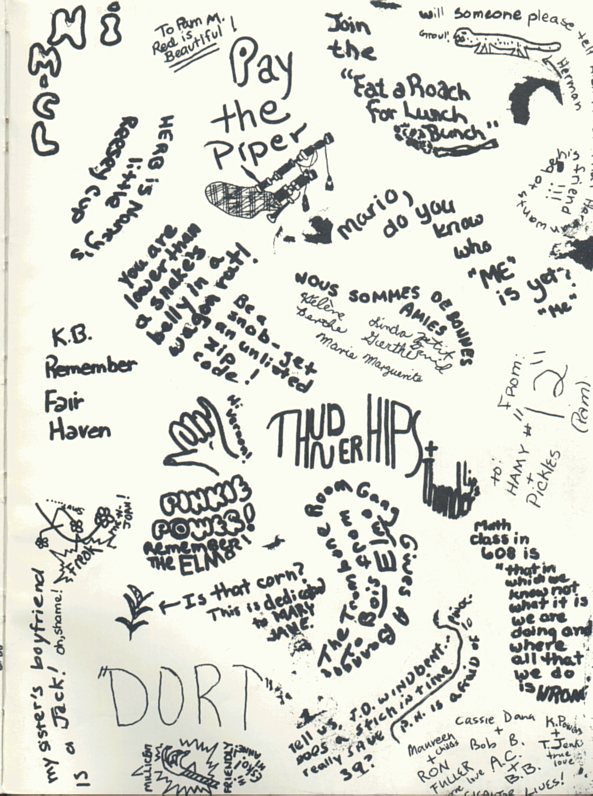 Hi
Pa-M
To Pam M.
Red is
Beautiful!
Pay
the
Piper
Join
the
"Eat a Roach
for Lunch
Bunch"
will someone please tell
Growl!
Herman
HERE IS
little
Normy's
Reesey cup
You are
lower than
a snake's
belly in a
wagon rout!
Mario,
do you
know
who
"ME"
is yet?
"Me"
Be a
snob-get
an unlisted
zip
code!
NOUS SOMMES DE BONNES
AMIES
Hélène
Berthe
Marie Marguerite
K.B.
Remember
Fair
Haven
THUNDNER HIPS
+
Thunder
From:
"12"
(Pam)
to:
HAMY #
+
Pickles
PINKIE
POWER!
Remember
THE ELM!
The Trombone Room Gang
Gives A
Bonage
To Bois
Is that corn?
This is dedicated
to MARY
JANE.
Math
class in
608 is
"that in
which we
know not
what it is
we are
doing and
where
all that
we do
is WRONG
my sister's boyfriend
is a Jack!
oh, shame!
FREAK
"DORT"
Tell us, J.D. WINDBENT...
DOES a stich in time
really SAVE
39?
(P.H. is afraid of
MILLICENT
FRIENDLY
Maureen
+
RON
FULLER
Cassie Dana
+
Bob B.
A.C.
+
B.B.
K.Powers
+
T.Jenk
true
love
LIVES!